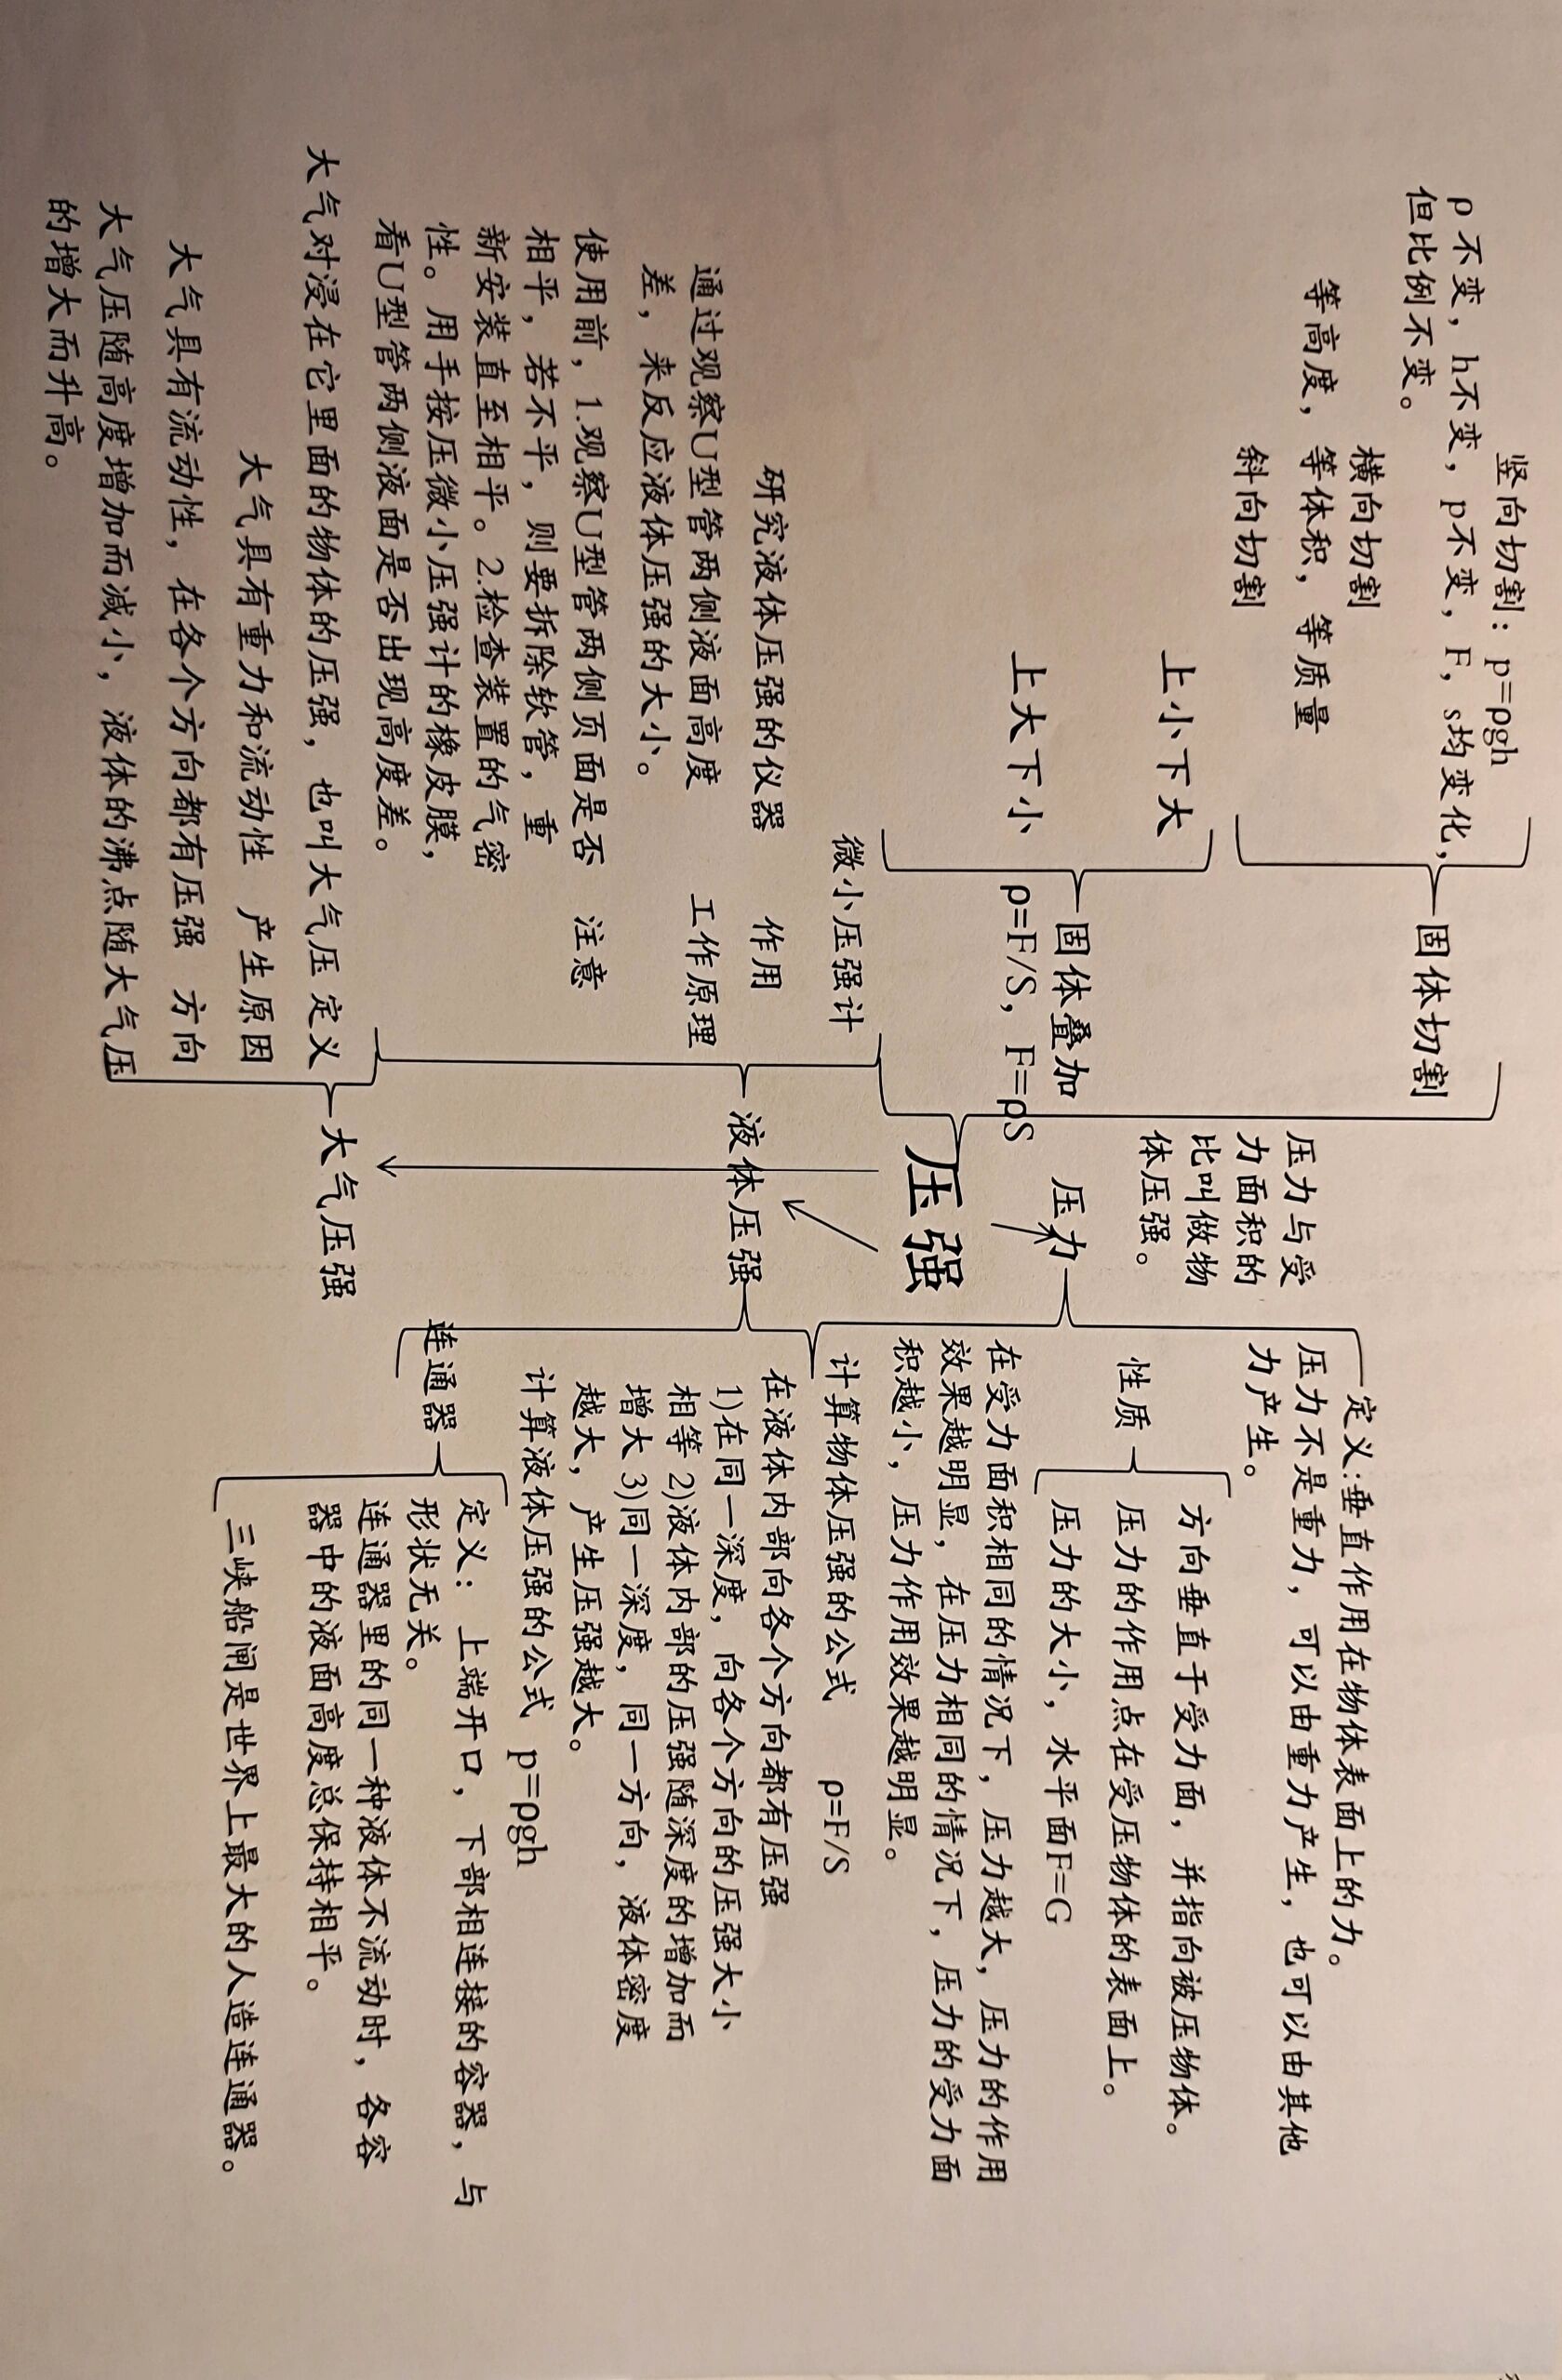 竖向切割：p=ρgh
ρ不变，h不变，p不变，F，s均变化，
但比例不变。
横向切割
等高度，等体积，等质量
斜向切割
固体切割
上小下大
上大下小
固体叠加
ρ=F/S，F=ρS
微小压强计
研究液体压强的仪器
作用
通过观察U型管两侧液面高度
差，来反应液体压强的大小。
工作原理
使用前，1.观察U型管两侧页面是否
相平，若不平，则要拆除软管，重
新安装直至相平。2.检查装置的气密
性。用手按压微小压强计的橡皮膜，
看U型管两侧液面是否出现高度差。
注意
大气对浸在它里面的物体的压强，也叫大气压 定义
大气具有重力和流动性 产生原因
大气具有流动性，在各个方向都有压强 方向
大气压随高度增加而减小，液体的沸点随大气压
的增大而升高。
压强
液体压强
大气压强
压力与受
力面积的
比叫做物
体压强。
压力
定义:垂直作用在物体表面上的力。
压力不是重力，可以由重力产生，也可以由其他
力产生。
性质
方向垂直于受力面，并指向被压物体。
压力的作用点在受压物体的表面上。
压力的大小，水平面F=G
在受力面积相同的情况下，压力越大，压力的作用
效果越明显，在压力相同的情况下，压力的受力面
积越小，压力作用效果越明显。
计算物体压强的公式 ρ=F/S
在液体内部向各个方向都有压强
1)在同一深度，向各个方向的压强大小
相等 2)液体内部的压强随深度的增加而
增大 3)同一深度，同一方向，液体密度
越大，产生压强越大。
计算液体压强的公式 p=ρgh
连通器
定义：上端开口，下部相连接的容器，与
形状无关。
连通器里的同一种液体不流动时，各容
器中的液面高度总保持相平。
三峡船闸是世界上最大的人造连通器。